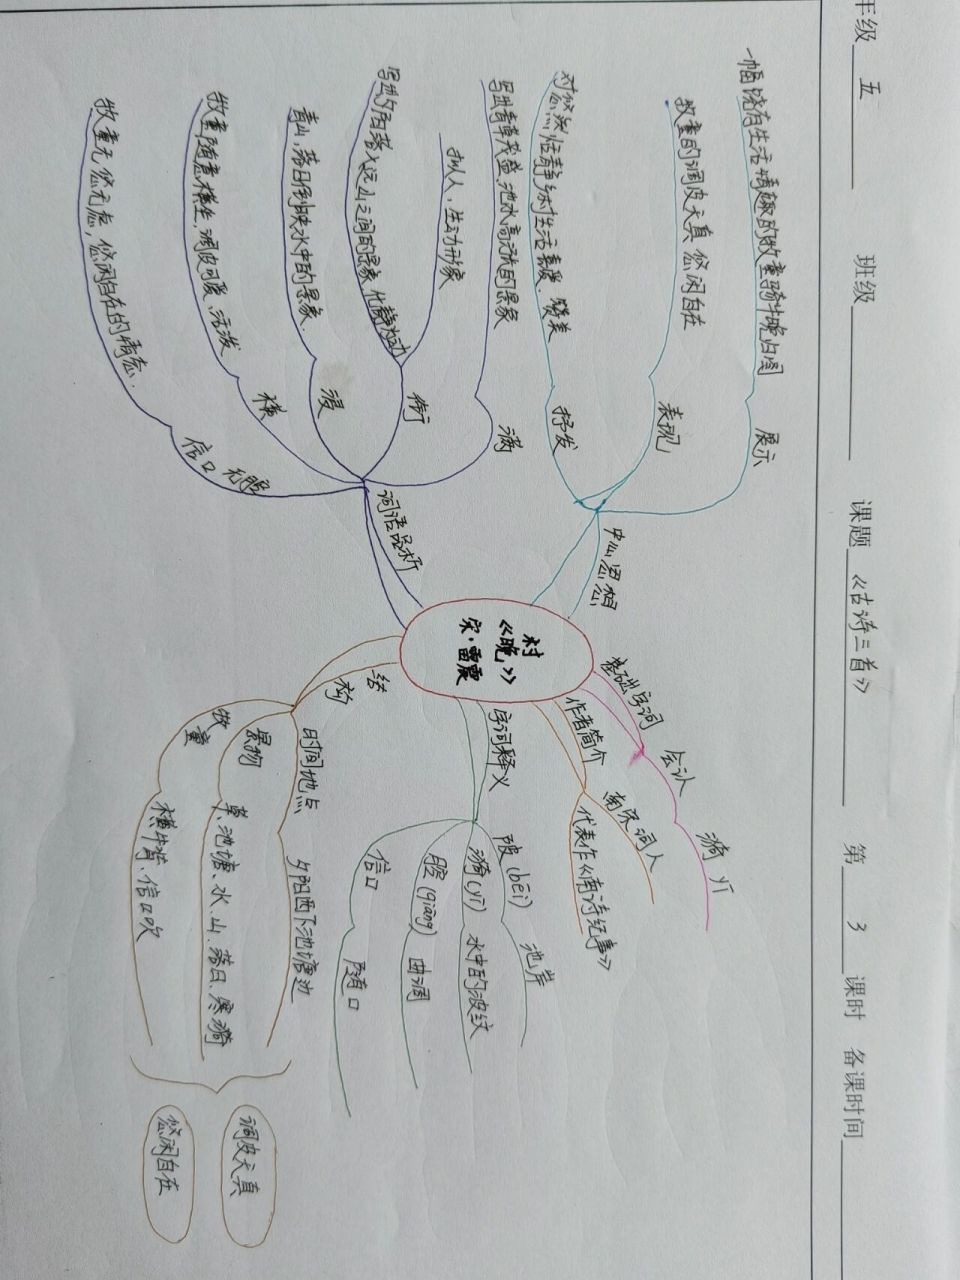 年级 五 班级 课题《古诗三首》 第 3 课时 备课时间
村
《晚》
宋·雷震
基础字词
会认
漪 yī
作者简介
南宋词人
代表作《南诗纪事》
字词释义
陂(bēi) 池岸
漪(yī) 水中的波纹
腔(qiāng) 曲调
信口 随口
结
构
时间地点 夕阳西下池塘边
景物 草、池塘、水、山、落日、寒漪
牧童 横牛背、信口吹
调皮天真
悠闲自在
词语品析
满
写出青草茂盛,池水高涨的景象
衔
拟人,生动形象
写出夕阳落入远山之间的景象,化静为动
浸
青山,落日倒映水中的景象.
横
牧童随意横坐,调皮可爱、活泼
信口 无腔
牧童无忧无虑,悠闲自在的情态.
中心思想
展示
一幅饶有生活情趣的牧童骑牛晚归图
表现
牧童的调皮天真 悠闲自在
抒发
对悠然恬静乡村生活喜爱、赞美